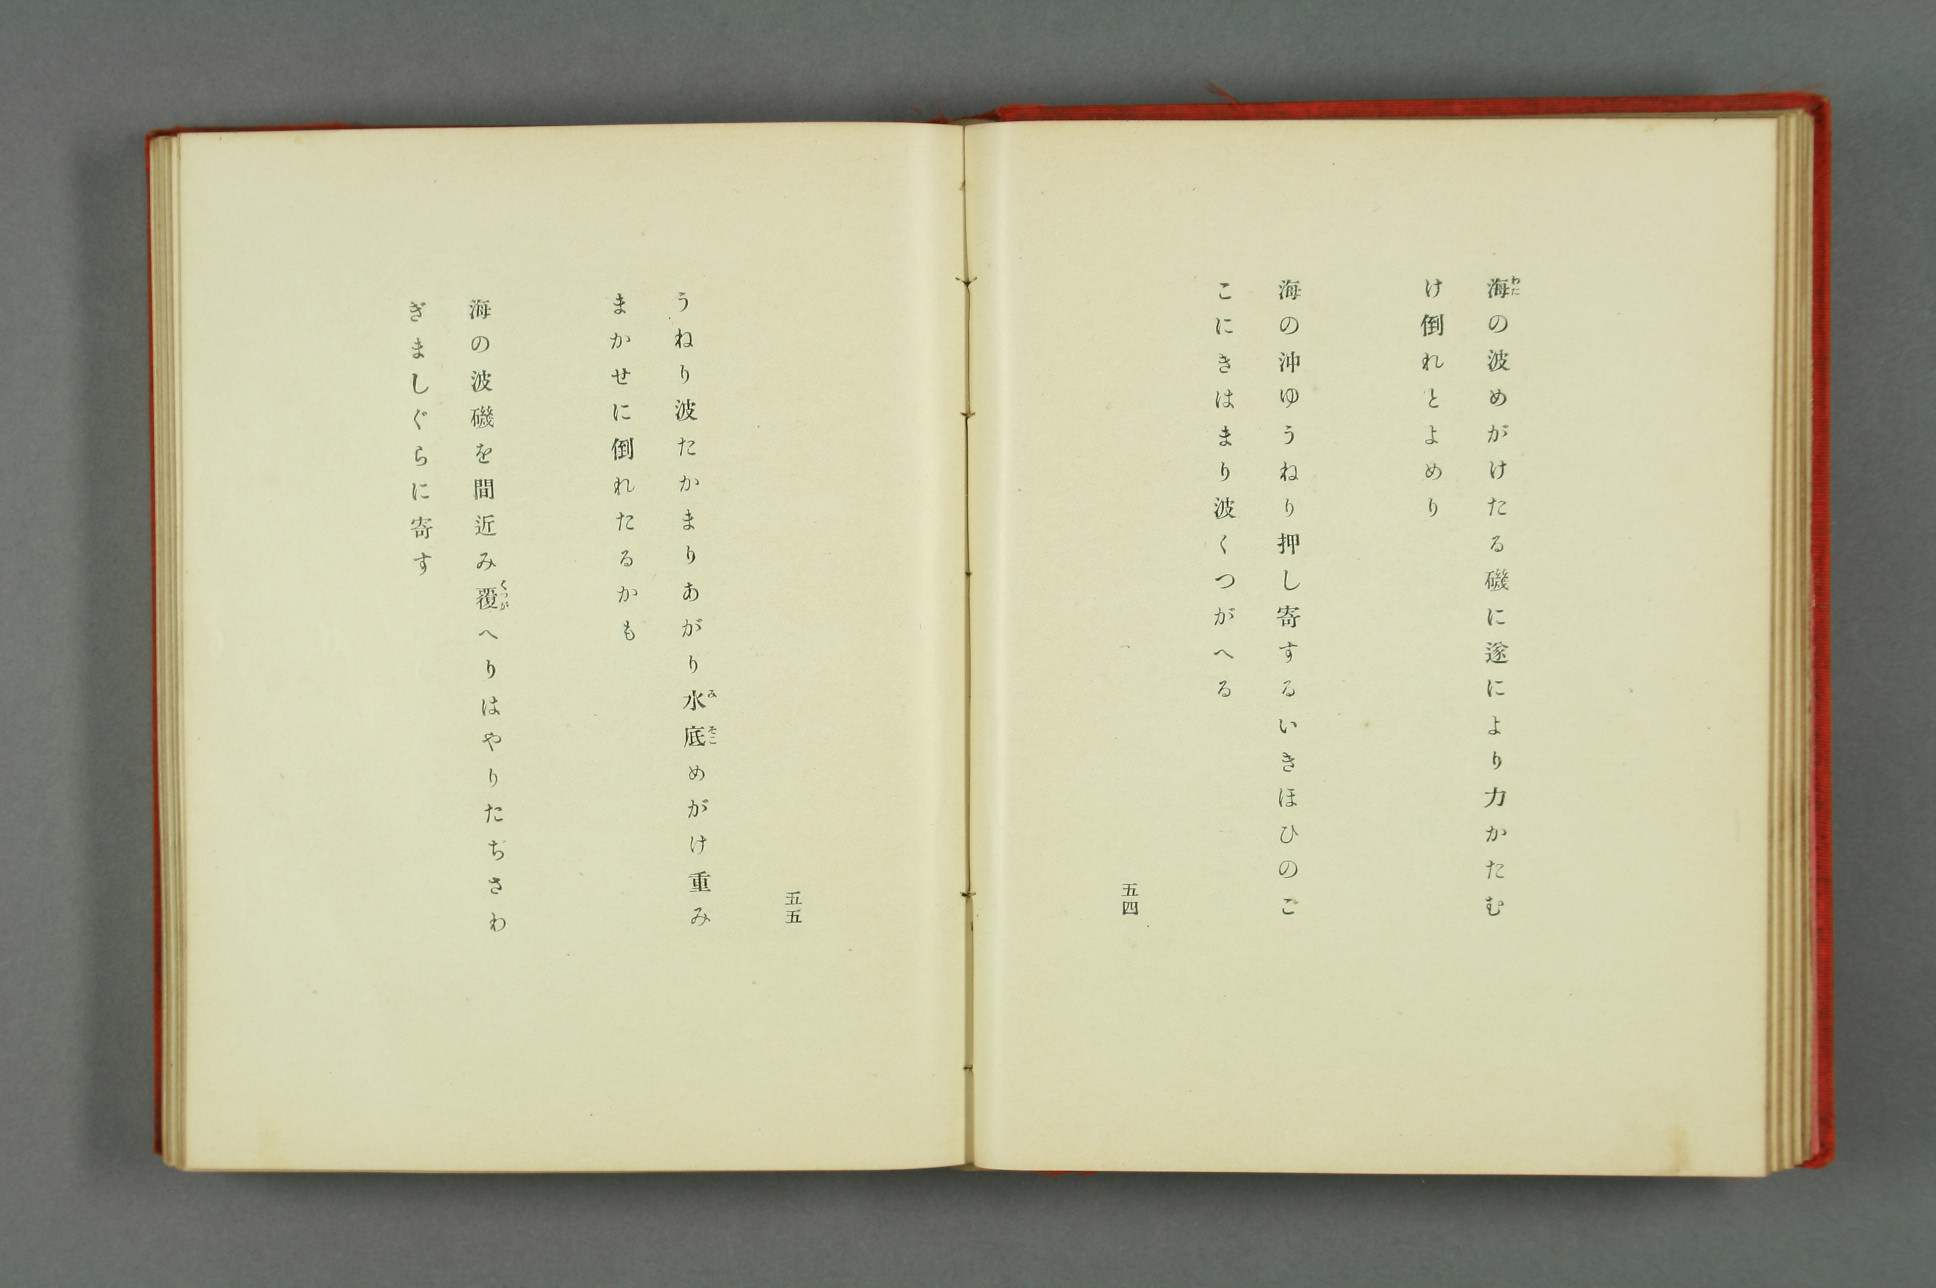 海の波めがけたる磯に遂により力かたむ
け倒れとよめり
海の沖ゆうねり押し寄するいきほひのご
こにきはまり波くつがへる
五四
うねり波たかまりあがり水底めがけ重み
まかせに倒れたるかも
海の波磯を間近み覆へりはやりたちさわ
ぎましぐらに寄す
五五